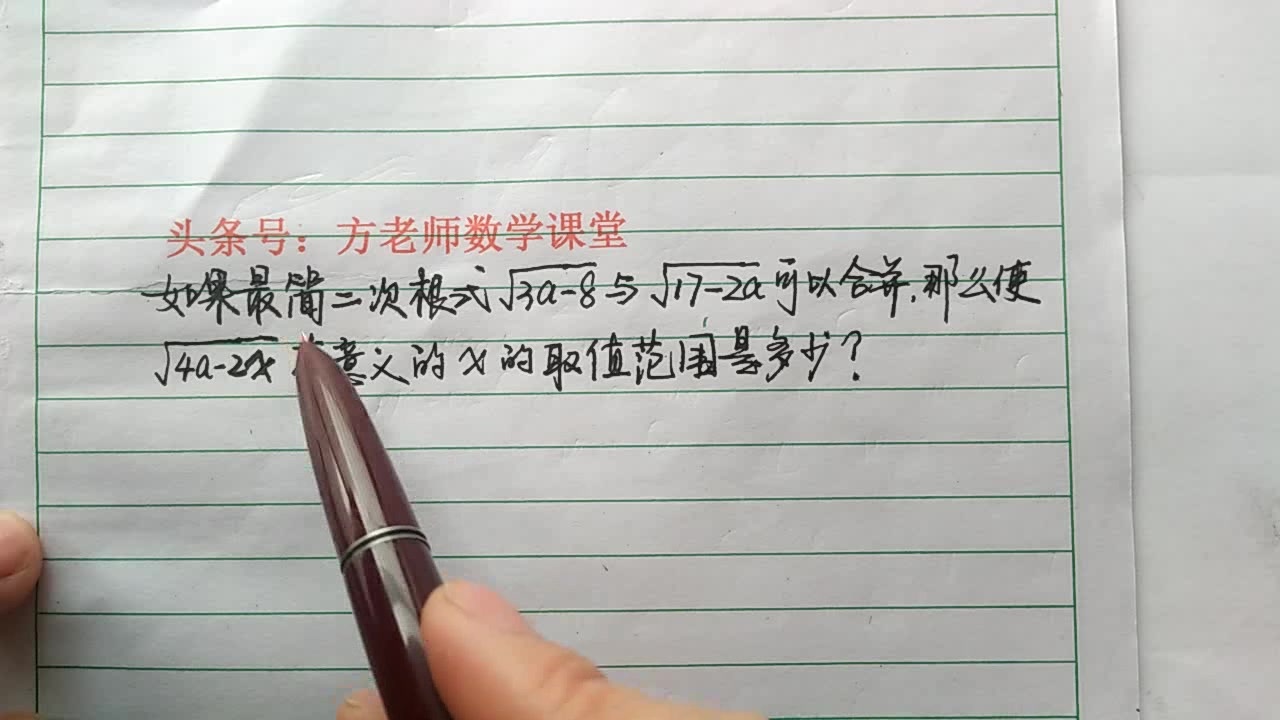 头条号：方老师数学课堂
如果最简二次根式√3a-8与√17-2a可以合并，那么使
√4a-2x 意义的x的取值范围是多少？